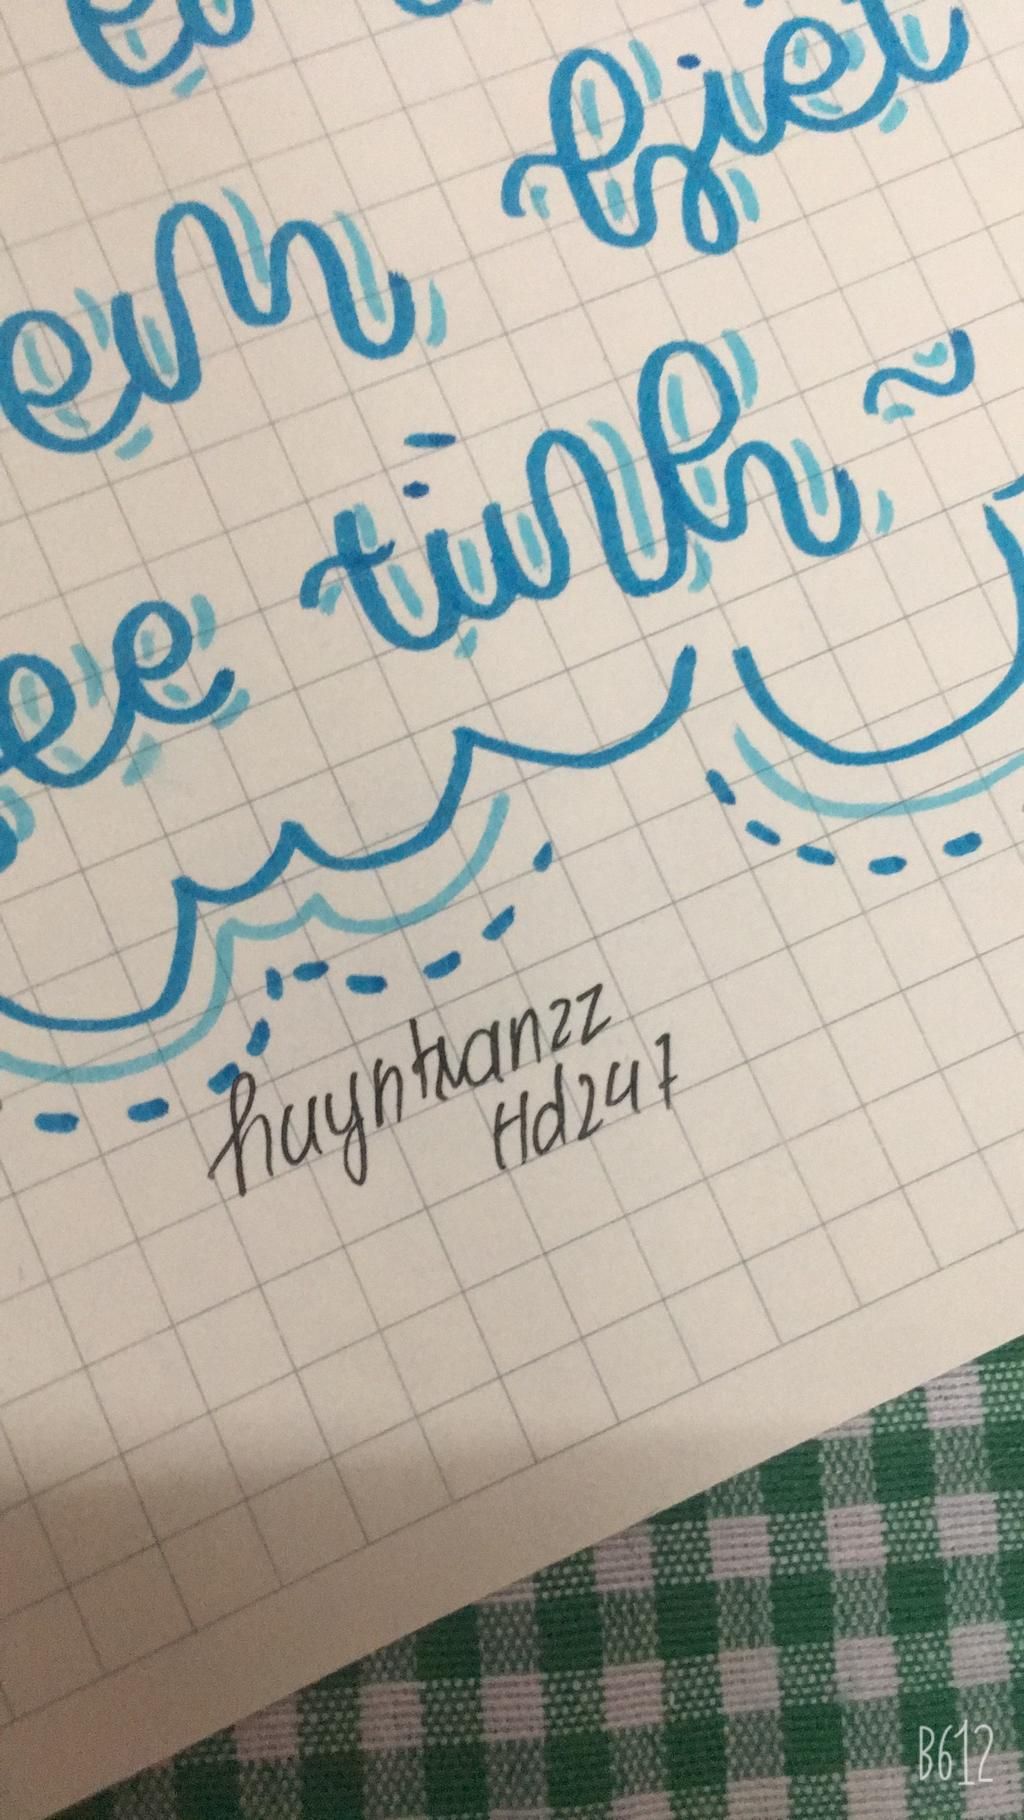 em bjet
ee tình ~
huyntranzz
Hd247
B612